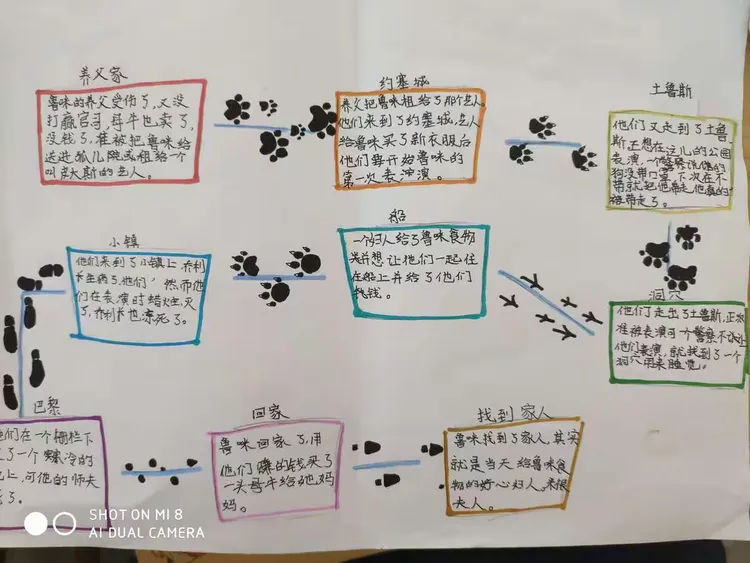 养父家
鲁味的养父受伤了,又没
打赢官司,母牛也卖了,
没钱了,准被把鲁味给
送进孤儿院或租给一个
叫大斯的艺人。
约塞城
养父把鲁味租给了那个艺人
他们来到了约塞城,艺人
给鲁味买了新衣服后
他们每开始鲁味的
第一次表演。
土鲁斯
他们又走到了土鲁
斯正想在这儿的公园
表演,一个警察说他的
狗没带口罩,下次在不
带就把他带走他真的
被带走了。
小镇
他们来到了小镇上,乔利
生病了,他们,然而他
们在表演时蜡烛灭
了,乔利也冻死了。
船
一个妇人给了鲁味食物
并想让他们一起住
在船上并给了他们
钱。
洞穴
他们走出了土鲁斯,正
准被表演可一个警察不让
他们表演,就找到了一个
洞穴用来睡觉。
巴黎
他们在一个栅栏下
了一个寒冷的
上,可他的师夫
了。
回家
鲁味回家了,用
他们赚的钱买了
一头母牛给他妈
妈。
找到家人
鲁味找到了家人,其实
就是当天给鲁味食
物的好心妇人。米根
夫人。
SHOT ON MI 8
AI DUAL CAMERA